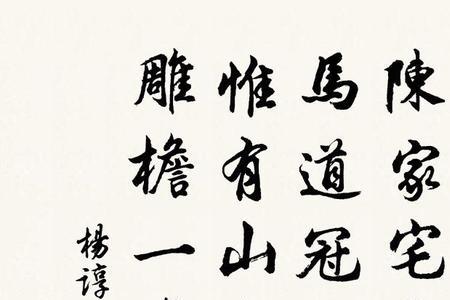 陳家宅
馬道冠
惟有山
雕檐一
楊諄